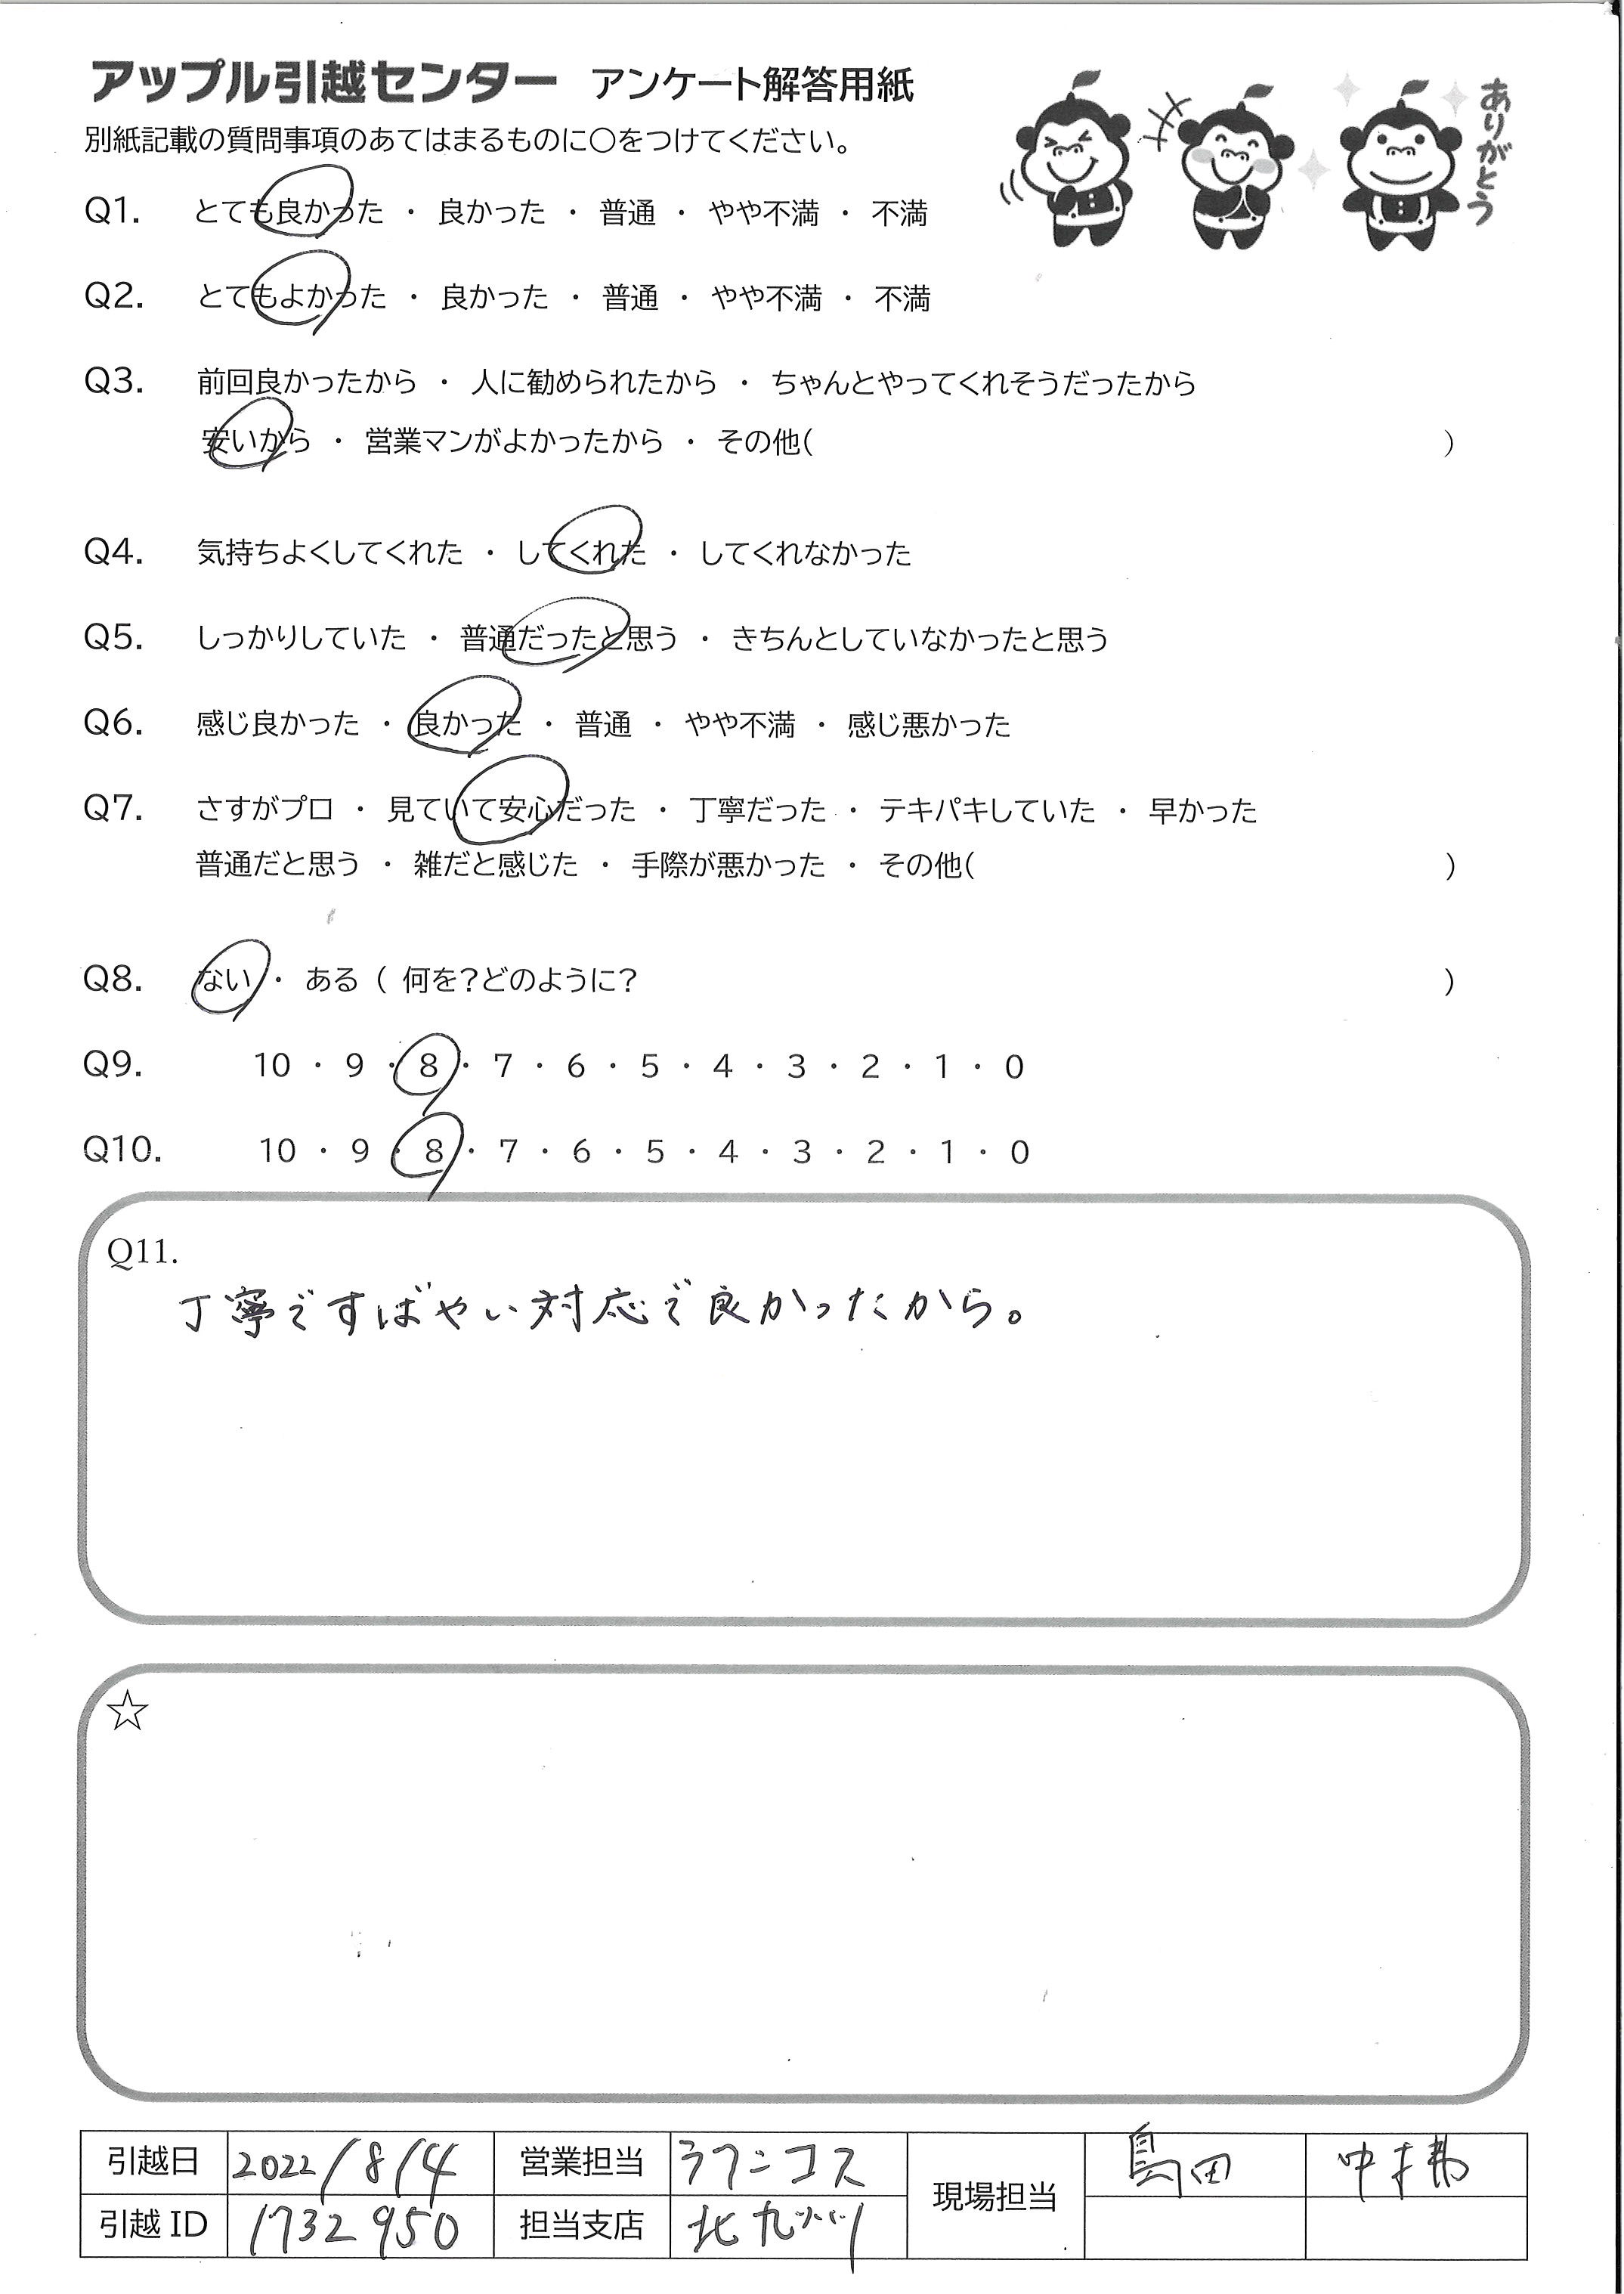 アップル引越センター アンケート解答用紙
別紙記載の質問事項のあてはまるものに○をつけてください。
ありがとう
Q1. とても良かった ・ 良かった ・ 普通 ・ やや不満 ・ 不満
Q2. とてもよかった ・ 良かった ・ 普通 ・ やや不満 ・ 不満
Q3. 前回良かったから ・ 人に勧められたから ・ ちゃんとやってくれそうだったから
安いから ・ 営業マンがよかったから ・ その他( )
Q4. 気持ちよくしてくれた ・ してくれた ・ してくれなかった
Q5. しっかりしていた ・ 普通だったと思う ・ きちんとしていなかったと思う
Q6. 感じ良かった ・ 良かった ・ 普通 ・ やや不満 ・ 感じ悪かった
Q7. さすがプロ ・ 見ていて安心だった ・ 丁寧だった ・ テキパキしていた ・ 早かった
普通だと思う ・ 雑だと感じた ・ 手際が悪かった ・ その他( )
Q8. ない ・ ある ( 何を?どのように? )
Q9. 10 ・ 9 ・ 8 ・ 7 ・ 6 ・ 5 ・ 4 ・ 3 ・ 2 ・ 1 ・ 0
Q10. 10 ・ 9 ・ 8 ・ 7 ・ 6 ・ 5 ・ 4 ・ 3 ・ 2 ・ 1 ・ 0
Q11.
丁寧ですばやい対応で良かったから。
☆
引越日 2022/8/4 営業担当 現場担当 島田
引越ID 1732950 担当支店 北九州